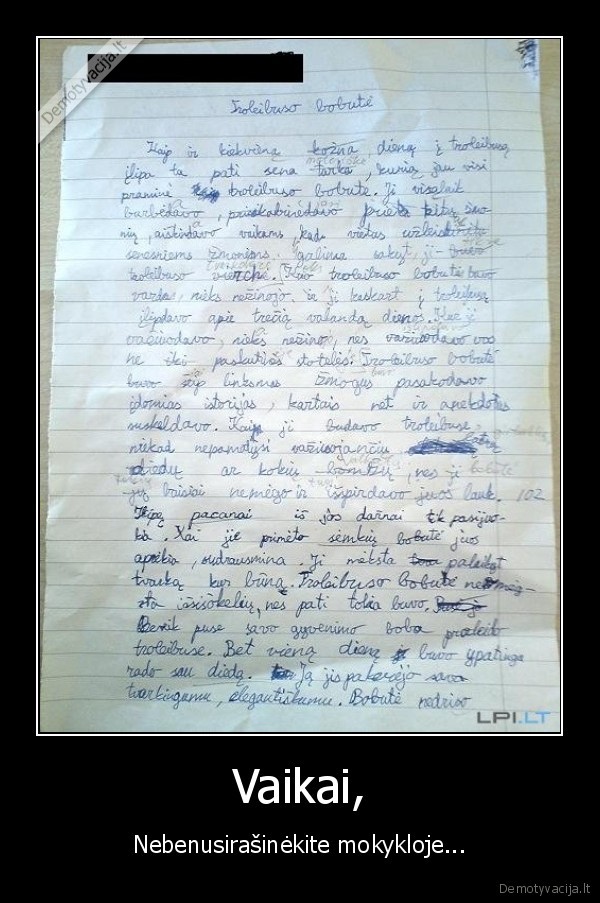 Demotyvacija.lt
Troleibuso bobutė
Kaip ir kiekvieną kožną dieną į troleibusą
įlipa ta pati sena tarka, kurią jau visi
praminė troleibuso bobute. Ji visalait
burbėdavo, priekabinėdavo prieta kitų žmo-
nių, aiškindavo vaikams, kad vietas užleist
senesniems žmonėms. galima sakyt, ji buvo
troleibuso viršchė. Kuo troleibuso bobutė buvo
vardu, nieks nežinojo. ir ji kaskart į troleibusą
įlipdavo apie trečią valandą dienos. Kur ji
važiuodavo, nieks nežino, nes važiuodavo vos
ne iki paskutinės stotelės. Troleibuso bobutė
buvo šiip linksmas žmogus pasakodavo
įdomias istorijas, kartais net ir anekdotus
suskeldavo. Kaip ji būdavo troleibuse,
niekad nepamatysi važiuojančių
diedų ar kokių bomžų, nes ji bobutė
jų baisiai nemėgo ir išspirdavo juos lauk. 102
pacanai iš jos dažnai tik pasijuo-
kia. Kai jie primėto semkių bobutė juos
aprėkia, sudrausmina. Ji mėksta palaikyt
tvarką kur būna. Troleibuso bobutė nemėg-
sta išsišokėlių, nes pati tokia buvo.
Beveik pusę savo gyvenimo boba praleido
troleibuse. Bet vieną dieną buvo ypatinga
rado sau diedą. Ją jis pakerėjo savo
tvarkingumu, elegantiškumu. Bobutė nedrįso
LPI.LT
Vaikai,
Nebenusirašinėkite mokykloje...
Demotyvacija.lt